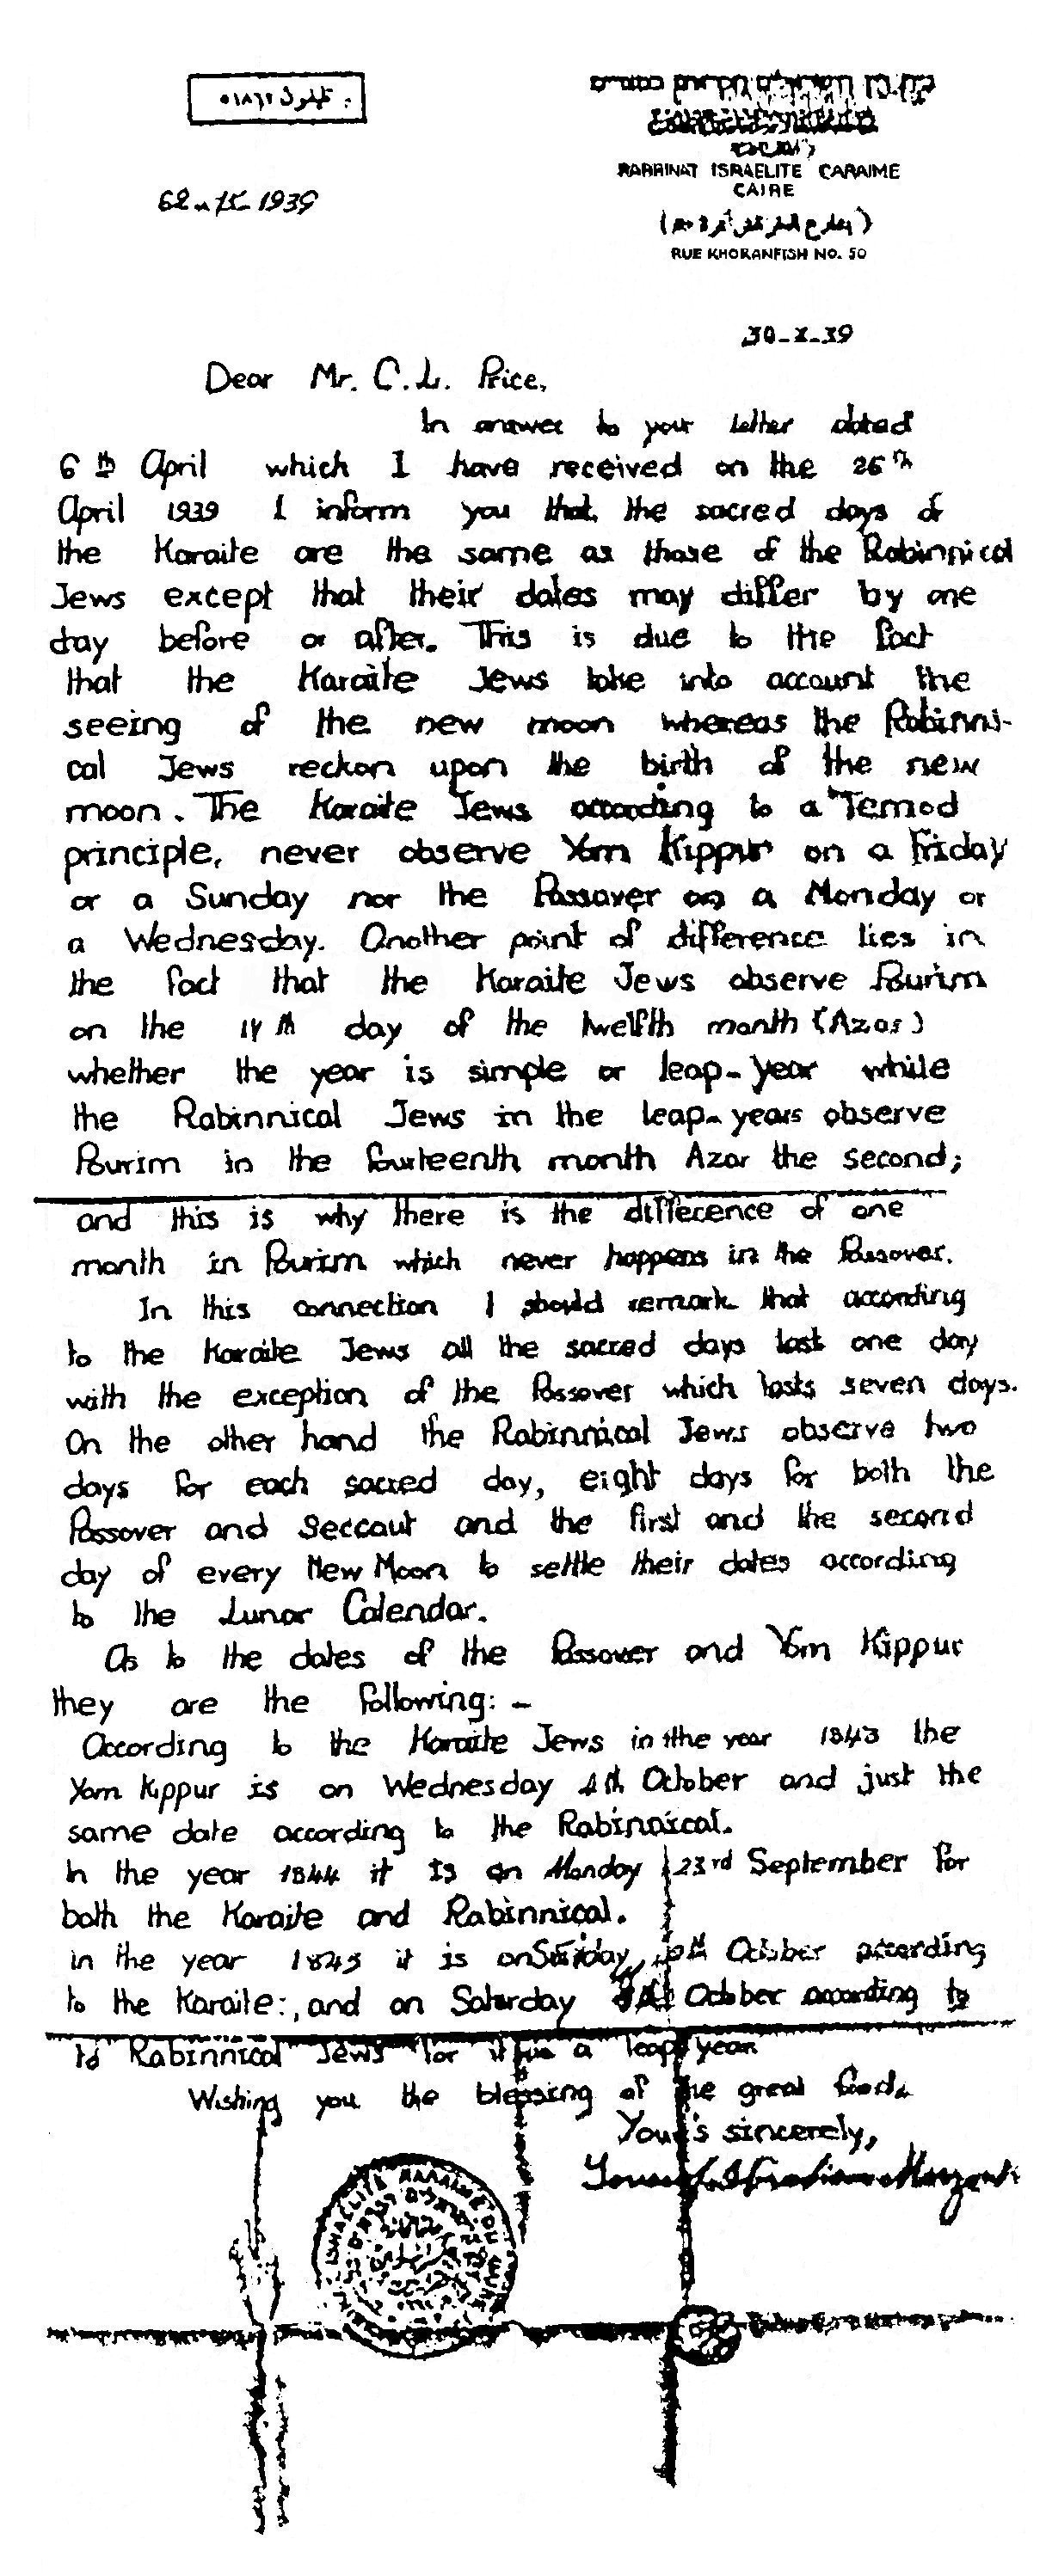 RABBINAT ISRAELITE CARAIME
CAIRE
RUE KHORANFISH NO. 50
1939
30-X-39
Dear Mr. C. L. Price,
In answer to your letter dated
6th April which I have received on the 26th
April 1939 I inform you that, the sacred days of
the Karaite are the same as those of the Rabinnical
Jews except that their dates may differ by one
day before or after. This is due to the fact
that the Karaite Jews take into account the
seeing of the new moon whereas the Rabinni-
cal Jews reckon upon the birth of the new
moon. The Karaite Jews according to a Temod
principle, never observe Yom Kippur on a Friday
or a Sunday nor the Passover on a Monday or
a Wednesday. Another point of difference lies in
the fact that the Karaite Jews observe Pourim
on the 14th day of the twelfth month (Azar)
whether the year is simple or leap-year while
the Rabinnical Jews in the leap-years observe
Pourim in the fourteenth month Azar the second;
and this is why there is the difference of one
month in Pourim which never happens in the Passover.
In this connection I should remark that according
to the Karaite Jews all the sacred days last one day
with the exception of the Passover which lasts seven days.
On the other hand the Rabinnical Jews observe two
days for each sacred day, eight days for both the
Passover and Seccaut and the first and the second
day of every New Moon to settle their dates according
to the Lunar Calendar.
As to the dates of the Passover and Yom Kippur
they are the following: -
According to the Karaite Jews in the year 1843 the
Yom Kippur is on Wednesday 4th October and just the
same date according to the Rabinnical.
In the year 1844 it is on Monday 23rd September for
both the Karaite and Rabinnical.
in the year 1845 it is on October according
to the Karaite:, and on Saturday October according to
to Rabinnical Jews for it a leap year
Wishing you the blessing of the great
Your's sincerely,
ISRAELITE